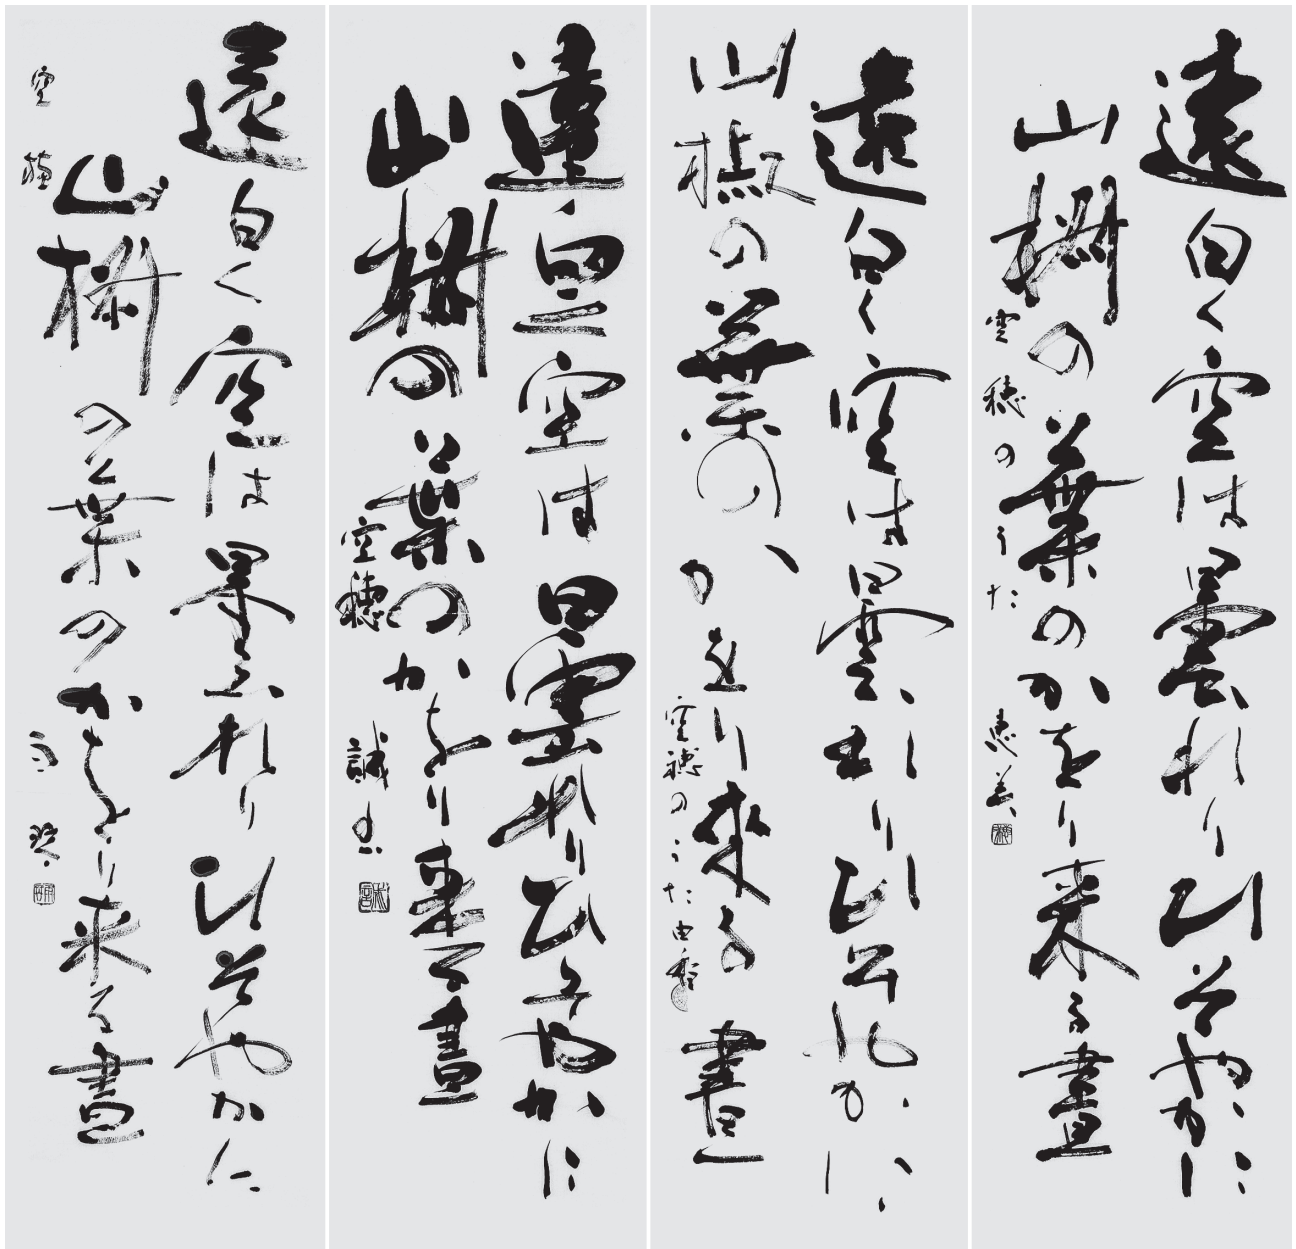 遠白く空は曇れりひそやかに
山椒の葉のかをり来る晝
空穂のうた 恵美
遠白く空は曇れりひそやかに
山椒の葉のかをり来る晝
空穂のうた
遠白く空は曇れりひそやかに
山椒の葉のかをり来る晝
空穂 誠
遠白く空は曇れりひそやかに
山椒の葉のかをり来る晝
空穂